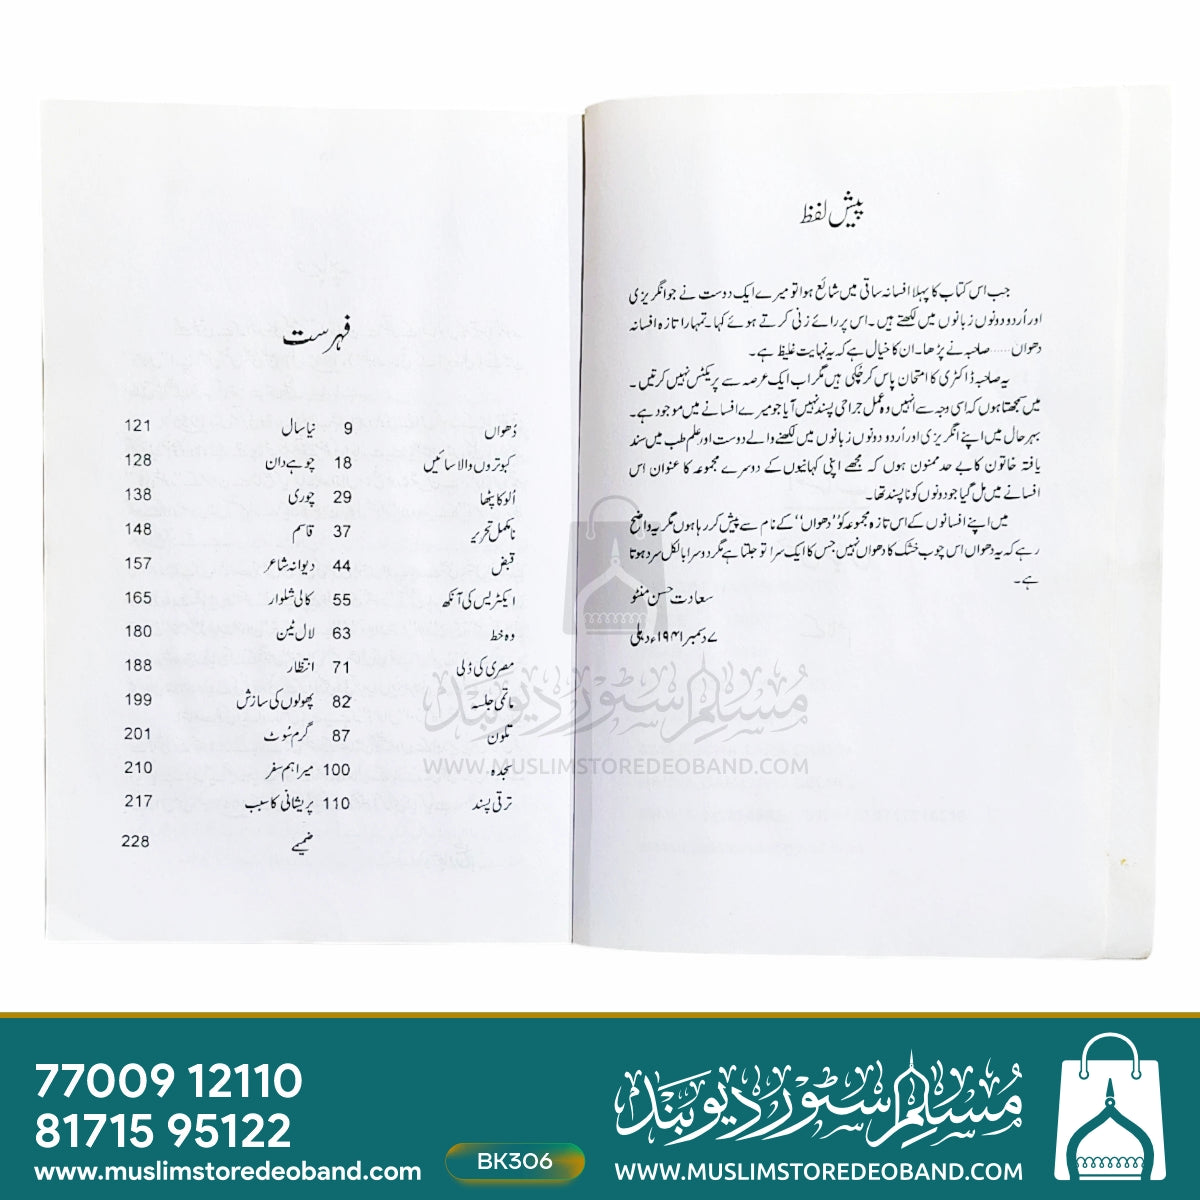 پیش لفظ
جب اس کتاب کا پہلا افسانہ ساقی میں شائع ہوا تو میرے ایک دوست نے جو انگریزی
اور اُردو دونوں زبانوں میں لکھتے ہیں۔ اس پر رائے زنی کرتے ہوئے کہا۔ تمہارا تازہ افسانہ
دھواں ...... صاحبہ نے پڑھا۔ ان کا خیال ہے کہ یہ نہایت غلیظ ہے۔
یہ صاحبہ ڈاکٹری کا امتحان پاس کر چُکی ہیں مگر اب ایک عرصہ سے پریکٹس نہیں کرتیں۔
میں سمجھتا ہوں کہ اسی وجہ سے انہیں وہ عمل جراحی پسند نہیں آیا جو میرے افسانے میں موجود ہے۔
بہر حال میں اپنے انگریزی اور اُردو دونوں زبانوں میں لکھنے والے دوست اور علم طب میں سند
یافتہ خاتون کا بے حد ممنون ہوں کہ مجھے اپنی کہانیوں کے دوسرے مجموعہ کا عنوان اس
افسانے میں مل گیا جو دونوں کو ناپسند تھا۔
میں اپنے افسانوں کے اس تازہ مجموعہ کو ”دھواں“ کے نام سے پیش کر رہا ہوں مگر یہ واضح
رہے کہ یہ دھواں اس چوب خشک کا دھواں نہیں جس کا ایک سرا تو جلتا ہے مگر دوسرا بالکل سرد ہوتا
ہے۔
سعادت حسن منٹو
۷ دسمبر ۱۹۴۱ء دہلی
فہرست
دُھواں 9 نیا سال 121
کبوتروں والا سائیں 18 چوہے دان 128
اُلو کا پٹھا 29 چوری 138
نامکمل تحریر 37 قاسم 148
قبض 44 دیوانہ شاعر 157
ایکٹریس کی آنکھ 55 کالی شلوار 165
وہ خط 63 لال ٹین 180
مصری کی ڈلی 71 انتظار 188
ماتمی جلسہ 82 پھولوں کی سازش 199
تلون 87 گرم سُوٹ 201
سجدہ 100 میرا ہم سفر 210
ترقی پسند 110 پریشانی کا سبب 217
ضمیمے 228
مسلم سٹور دیوبند
WWW.MUSLIMSTOREDEOBAND.COM
77009 12110
81715 95122
www.muslimstoredeoband.com
BK306
مسلم سٹور دیوبند
WWW.MUSLIMSTOREDEOBAND.COM